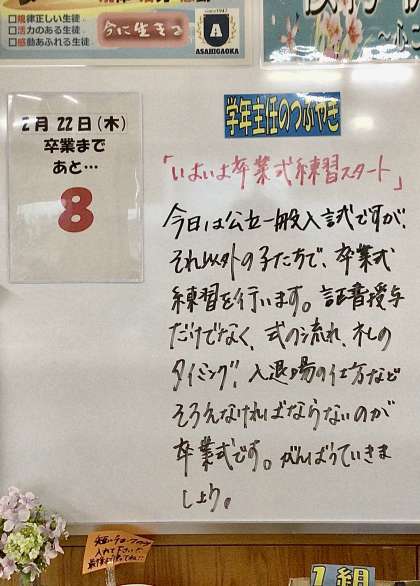 □規律正しい生徒
□活力のある生徒
□感動あふれる生徒
今に生きる
since1947
A
ASAHIGAOKA
2月 22日(木)
卒業まで
あと…
8
学年主任のつぶやき
「いよいよ卒業式練習スタート」
今日は公立一般入試ですが、
それ以外の子たちで、卒業式
練習を行います。証書授与
だけでなく、式の流れ、礼の
タイミング、入退場の仕方など
そろえなければならないのが
卒業式です。がんばっていきま
しょう。
入れて下さい!!
1組